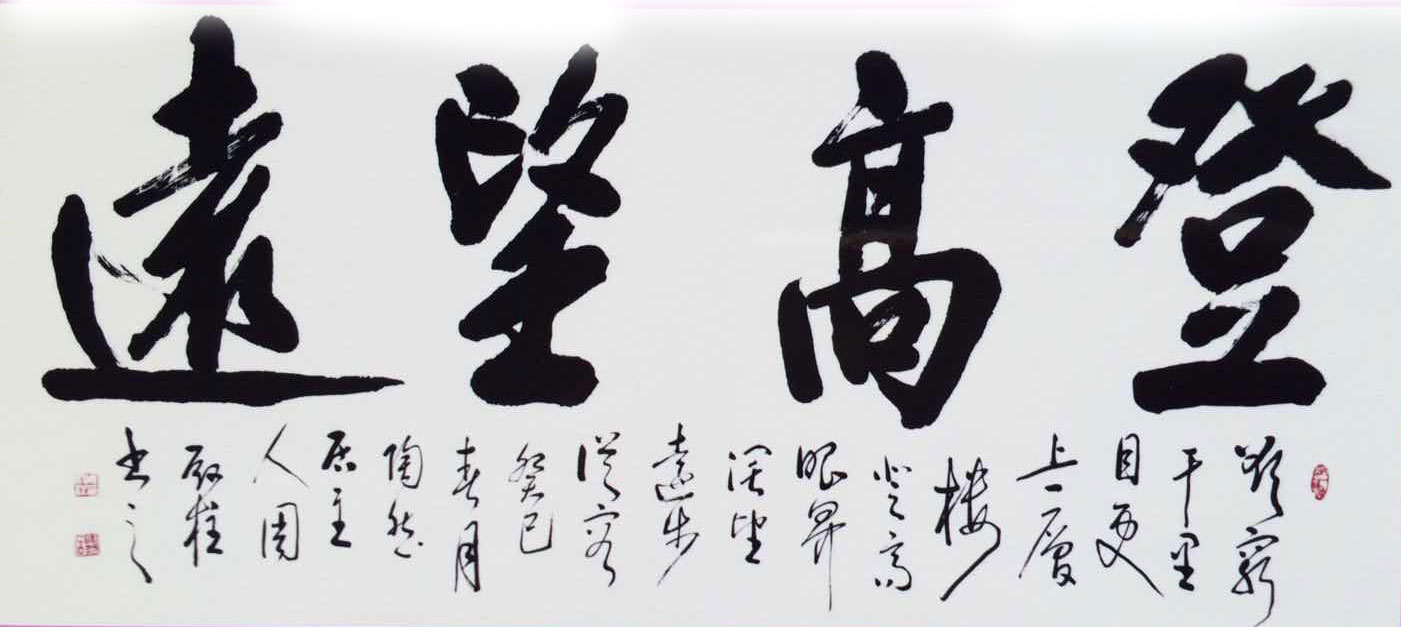 登高望遠
欲窮
千里
目更
上一層
樓
登高
眼界
闊望
遠步
從容
癸巳
春月
陶然
居主
人周
书之